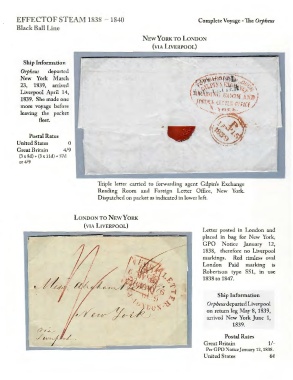 EFFECT OF STEAM 1838 – 1840
Complete Voyage - The Orpheus
Black Ball Line
NEW YORK TO LONDON
(VIA LIVERPOOL)
Ship Information
Orpheus departed
New York March
23, 1839, arrived
Liverpool April 14,
1839. She made one
more voyage before
leaving the packet
fleet.
Postal Rates
United States 0
Great Britain 4/9
Triple letter carried to forwarding agent Gilpin's Exchange
Reading Room and Foreign Letter Office, New York.
Dispatched on packet as indicated in lower left.
LONDON TO NEW YORK
(VIA LIVERPOOL)
New York
Liverpool
Letter posted in London and
placed in bag for New York,
GPO Notice January 12,
1838, therefore no Liverpool
markings. Red timless oval
London Paid marking is
Robertson type S51, in use
1838 to 1847.
Ship Information
Orpheus departed Liverpool
on return leg May 8, 1839,
arrived New York June 1,
1839.
Postal Rates
Great Britain 1/-
Per GPO Notice January 12, 1838.
United States